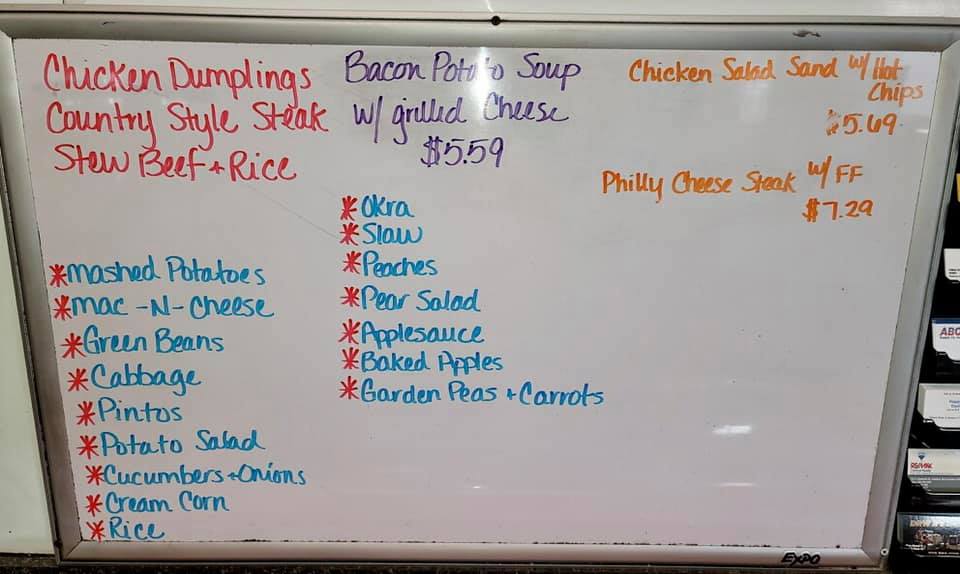 Chicken Dumplings
Country Style Steak
Stew Beef + Rice
Bacon Potato Soup
w/ grilled Cheese
$5.59
Chicken Salad Sand w/ Hot
Chips
$5.69
Philly Cheese Steak w/ FF
$7.29
*Mashed Potatoes
*Mac-N-Cheese
*Green Beans
*Cabbage
*Pintos
*Potato Salad
*Cucumbers + Onions
*Cream Corn
*Rice
*Okra
*Slaw
*Peaches
*Pear Salad
*Applesauce
*Baked Apples
*Garden Peas + Carrots
EXPO
ABC
RE/MAX